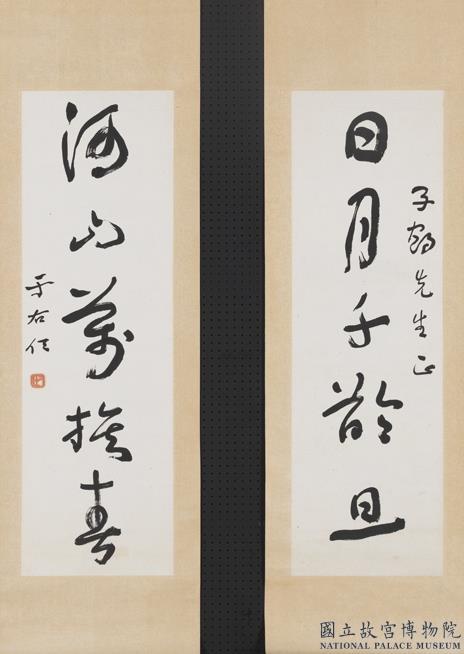 子鶴先生正
日月千齡旦
河山萬族春
于右任
國立故宮博物院
NATIONAL PALACE MUSEUM